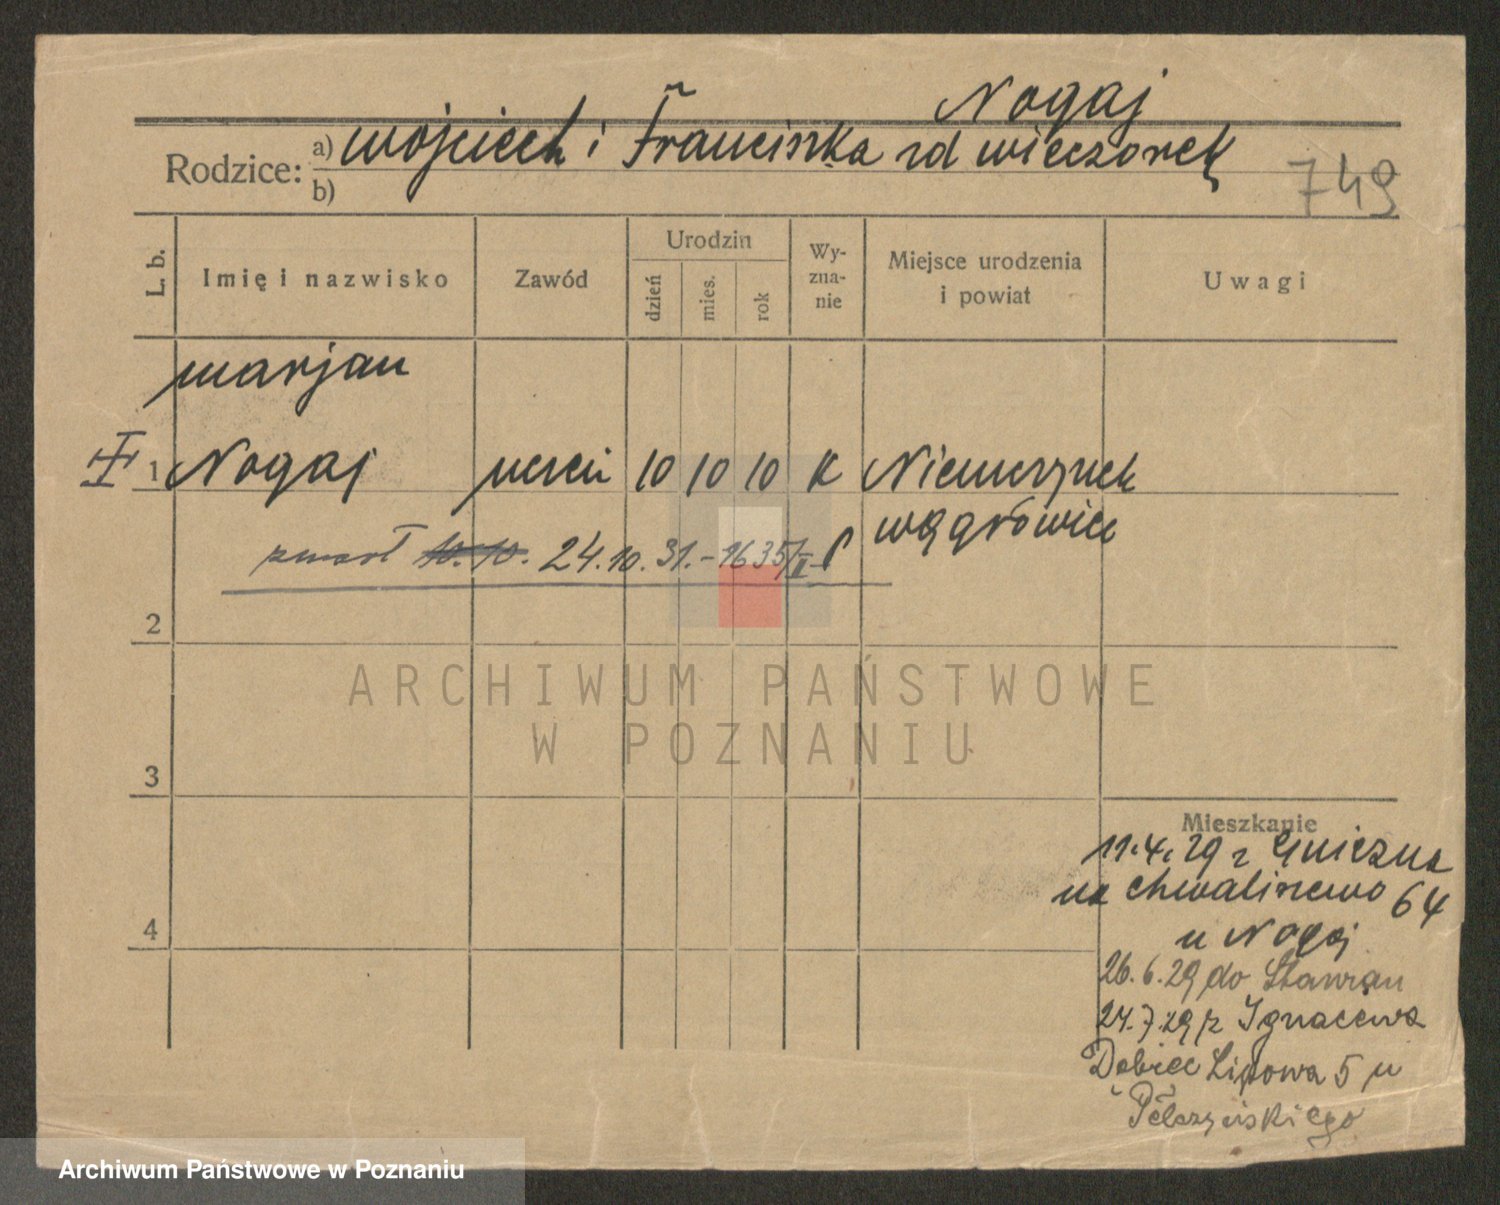 Nogaj
Rodzice: a) Wojciech i Franciszka zd Wieczorek
b)
749
L. b.
Imię i nazwisko
Zawód
Urodzin
dzień
mies.
rok
Wy-
zna-
nie
Miejsce urodzenia
i powiat
Uwagi
Marjan
1 Nogaj uczeń 10 10 10 K Niemczynek
Wągrowiec
zmarł 10.10. 24.10.31.-1635/II
2
ARCHIWUM PAŃSTWOWE
W POZNANIU
3
Mieszkanie
11.4.29 z Gniezna
na Chwaliszewo 64
u Nogaj
4
26.6.29 do
24.7.29 z Ignacewa
Dębiec Lipowa 5 u
Archiwum Państwowe w Poznaniu